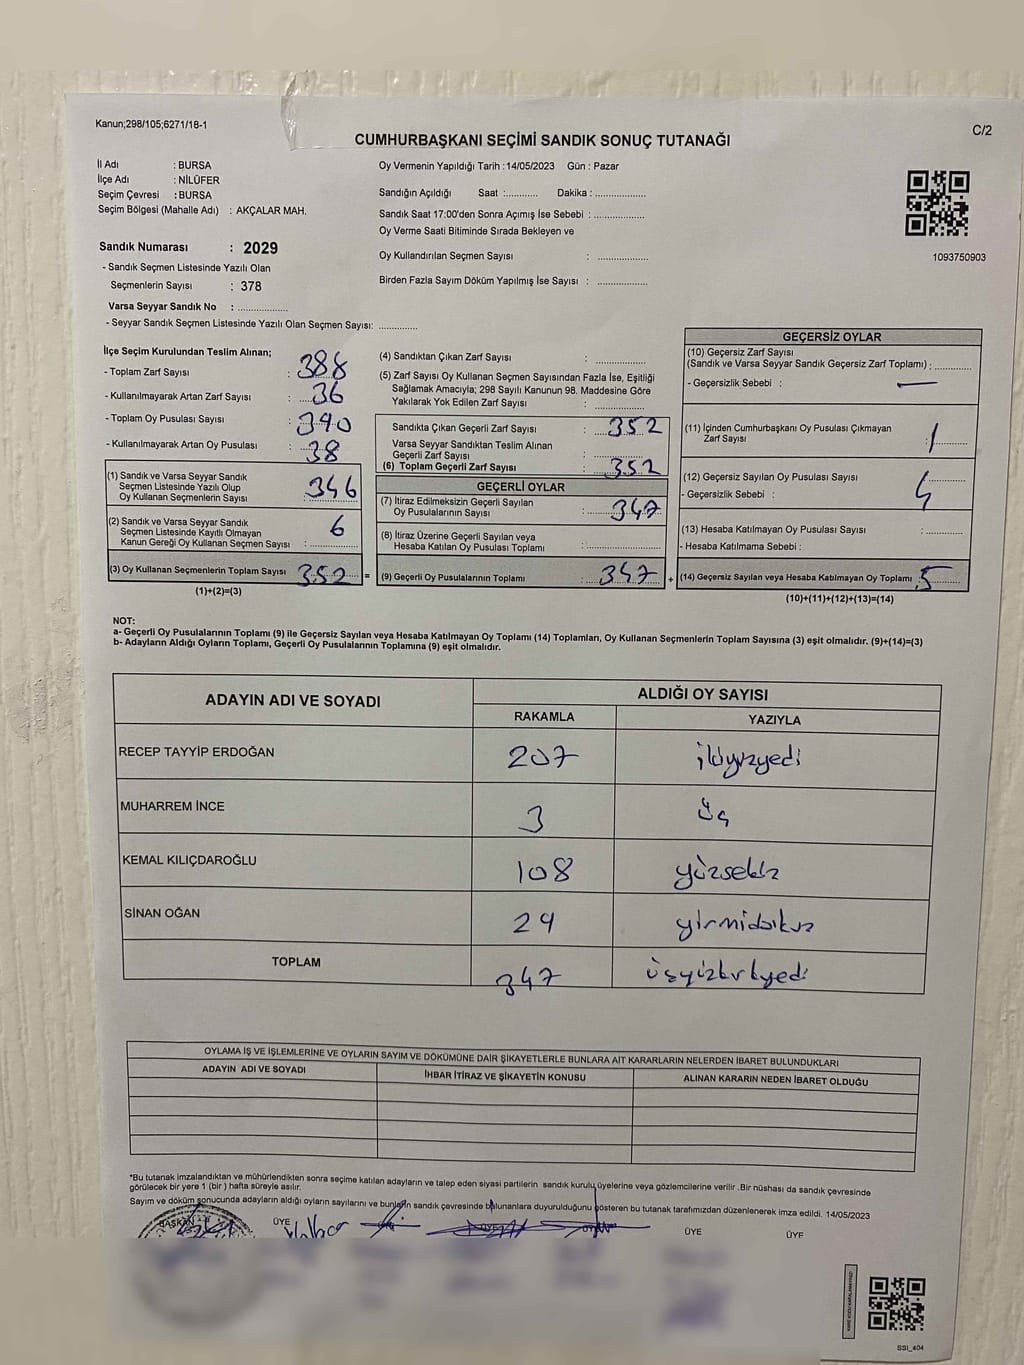 Kanun;298/105;6271/18-1
C/2
CUMHURBAŞKANI SEÇİMİ SANDIK SONUÇ TUTANAĞI
İl Adı : BURSA
İlçe Adı : NİLÜFER
Seçim Çevresi : BURSA
Seçim Bölgesi (Mahalle Adı) : AKÇALAR MAH.
Sandık Numarası : 2029
- Sandık Seçmen Listesinde Yazılı Olan
Seçmenlerin Sayısı : 378
Varsa Seyyar Sandık No : ..................
- Seyyar Sandık Seçmen Listesinde Yazılı Olan Seçmen Sayısı: ..............
Oy Vermenin Yapıldığı Tarih :14/05/2023 Gün : Pazar
Sandığın Açıldığı Saat :............ Dakika : ..................
Sandık Saat 17:00'den Sonra Açımış İse Sebebi : ..................
Oy Verme Saati Bitiminde Sırada Bekleyen ve
Oy Kullandırılan Seçmen Sayısı : ..................
Birden Fazla Sayım Döküm Yapılmış İse Sayısı : ..................
1093750903
İlçe Seçim Kurulundan Teslim Alınan;
- Toplam Zarf Sayısı : 388
- Kullanılmayarak Artan Zarf Sayısı : 36
- Toplam Oy Pusulası Sayısı : 390
- Kullanılmayarak Artan Oy Pusulası : 38
(1) Sandık ve Varsa Seyyar Sandık
Seçmen Listesinde Yazılı Olup
Oy Kullanan Seçmenlerin Sayısı : 346
(2) Sandık ve Varsa Seyyar Sandık
Seçmen Listesinde Kayıtlı Olmayan
Kanun Gereği Oy Kullanan Seçmen Sayısı : 6
(3) Oy Kullanan Seçmenlerin Toplam Sayısı : 352 =
(1)+(2)=(3)
(4) Sandıktan Çıkan Zarf Sayısı : ..................
(5) Zarf Sayısı Oy Kullanan Seçmen Sayısından Fazla İse, Eşitliği
Sağlamak Amacıyla; 298 Sayılı Kanunun 98. Maddesine Göre
Yakılarak Yok Edilen Zarf Sayısı : ..................
Sandıkta Çıkan Geçerli Zarf Sayısı : 352
Varsa Seyyar Sandıktan Teslim Alınan
Geçerli Zarf Sayısı : ..................
(6) Toplam Geçerli Zarf Sayısı : 352
GEÇERLİ OYLAR
(7) İtiraz Edilmeksizin Geçerli Sayılan
Oy Pusulalarının Sayısı : 347
(8) İtiraz Üzerine Geçerli Sayılan veya
Hesaba Katılan Oy Pusulası Toplamı : ..................
(9) Geçerli Oy Pusulalarının Toplamı : 347 +
GEÇERSİZ OYLAR
(10) Geçersiz Zarf Sayısı
(Sandık ve Varsa Seyyar Sandık Geçersiz Zarf Toplamı) : .............
- Geçersizlik Sebebi : —
(11) İçinden Cumhurbaşkanı Oy Pusulası Çıkmayan
Zarf Sayısı : 1
(12) Geçersiz Sayılan Oy Pusulası Sayısı : 4
- Geçersizlik Sebebi :
(13) Hesaba Katılmayan Oy Pusulası Sayısı : .............
- Hesaba Katılmama Sebebi :
(14) Geçersiz Sayılan veya Hesaba Katılmayan Oy Toplamı : 5
(10)+(11)+(12)+(13)=(14)
NOT:
a- Geçerli Oy Pusulalarının Toplamı (9) ile Geçersiz Sayılan veya Hesaba Katılmayan Oy Toplamı (14) Toplamları, Oy Kullanan Seçmenlerin Toplam Sayısına (3) eşit olmalıdır. (9)+(14)=(3)
b- Adayların Aldığı Oyların Toplamı, Geçerli Oy Pusulalarının Toplamına (9) eşit olmalıdır.
ADAYIN ADI VE SOYADI
ALDIĞI OY SAYISI
RAKAMLA YAZIYLA
RECEP TAYYİP ERDOĞAN 207 ikiyüzyedi
MUHARREM İNCE 3 üç
KEMAL KILIÇDAROĞLU 108 yüzsekiz
SİNAN OĞAN 29 yirmidokuz
TOPLAM 347 üçyüzkırkyedi
OYLAMA İŞ VE İŞLEMLERİNE VE OYLARIN SAYIM VE DÖKÜMÜNE DAİR ŞİKAYETLERLE BUNLARA AİT KARARLARIN NELERDEN İBARET BULUNDUKLARI
ADAYIN ADI VE SOYADI İHBAR İTİRAZ VE ŞİKAYETİN KONUSU ALINAN KARARIN NEDEN İBARET OLDUĞU
*Bu tutanak imzalandıktan ve mühürlendikten sonra seçime katılan adayların ve talep eden siyasi partilerin sandık kurulu üyelerine veya gözlemcilerine verilir .Bir nüshası da sandık çevresinde
görülecek bir yere 1 (bir ) hafta süreyle asılır.
Sayım ve döküm sonucunda adayların aldığı oyların sayılarını ve bunların sandık çevresinde bulunanlara duyurulduğunu gösteren bu tutanak tarafımızdan düzenlenerek imza edildi. 14/05/2023
BAŞKAN ÜYE ÜYE ÜYE ÜYE ÜYE ÜYE
SSI_404